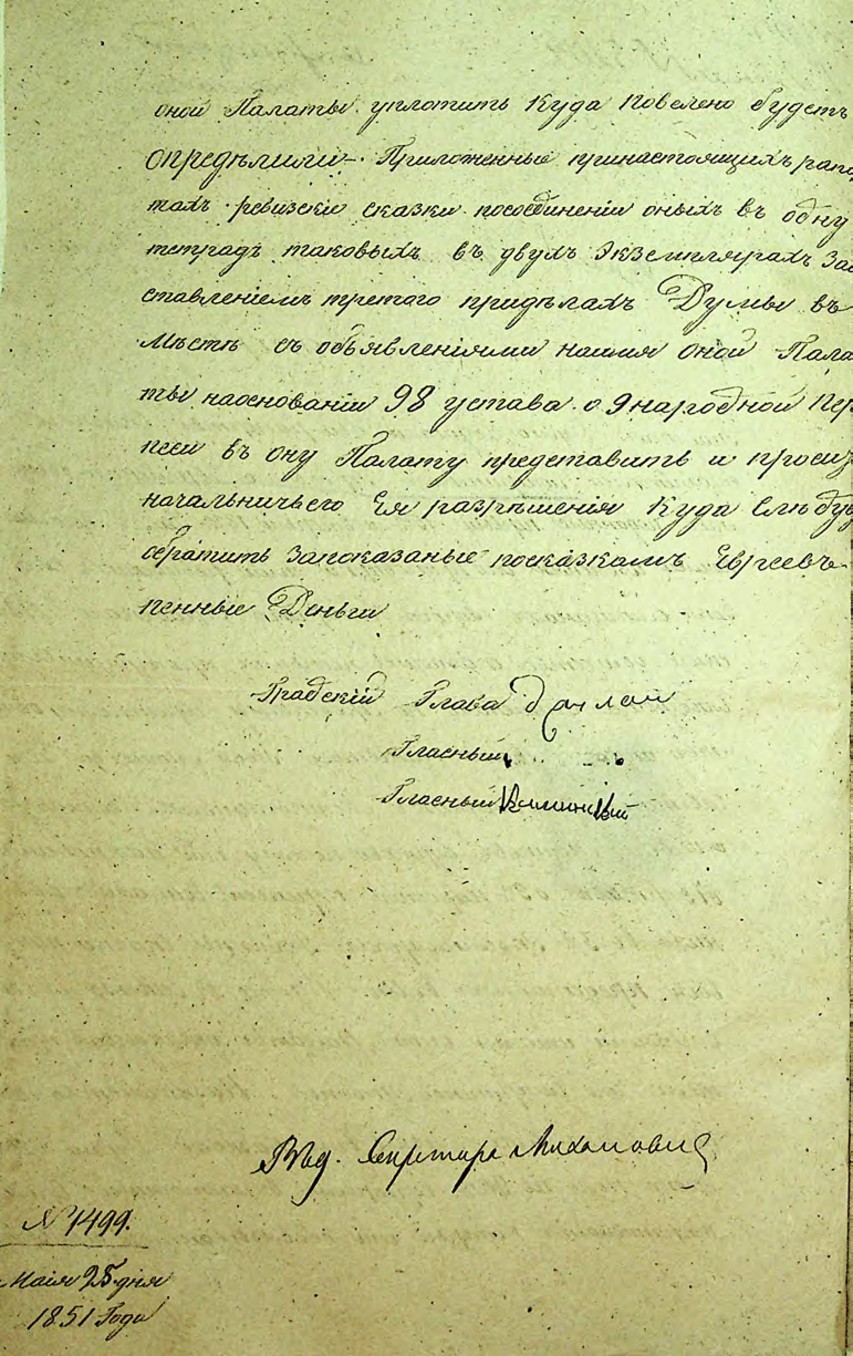 оной Палаты уплотить куда повелено будетъ
опредѣлили – Приложенные принастоящихъ рапо
тахъ ревизскіе сказки посоединеніи оныхъ въ одну
тетрадь таковыхъ въ двухъ Экземплярахъ Зао
ставленіемъ третого придѣлахъ Думы въ
Мѣстѣ съ объявленіями на имя оной Пала
ты наоснованіи 98 устава о 9 народной пер
писи въ ону Палату представить и просить
начальничьего Ея разрѣшенія Куда Слѣдуе
обратить Запоказаные посказкамъ Евреевъ
пенные Деньги
Градскій Глава
Гласный
Гласный
Секретарь Михаловичъ
№ 1499.
Маія 25 дня
1851 Года